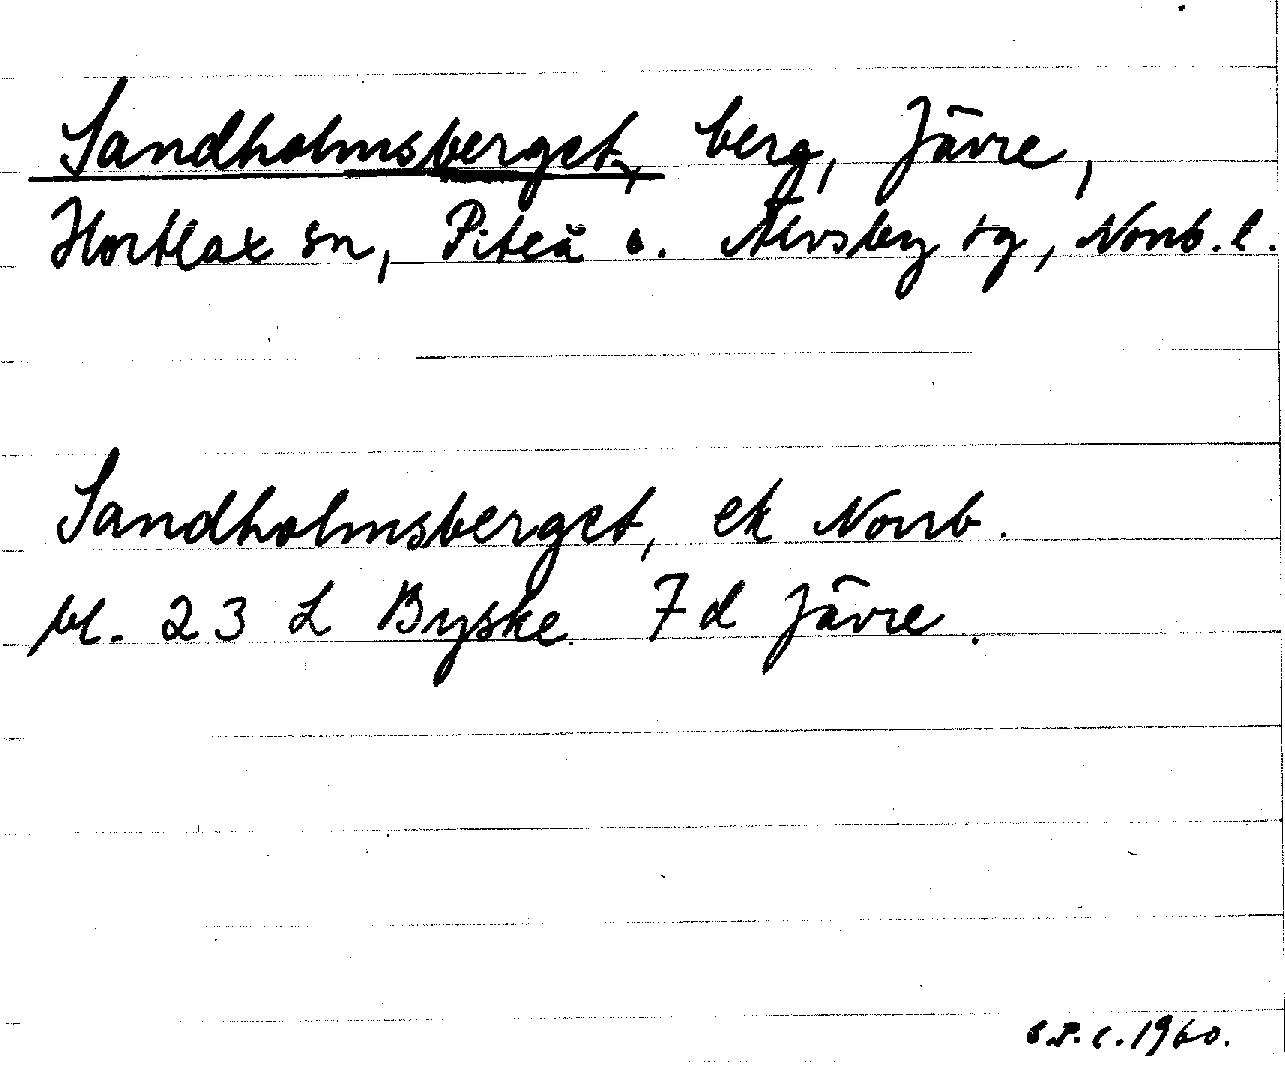 Sandholmsberget, berg, Jävre,
Hortlax sn, Piteå o. Älvsby tg, Norrb. l.
Sandholmsberget, ek Norrb.
bl. 23 L Byske 7d Jävre.
1960.